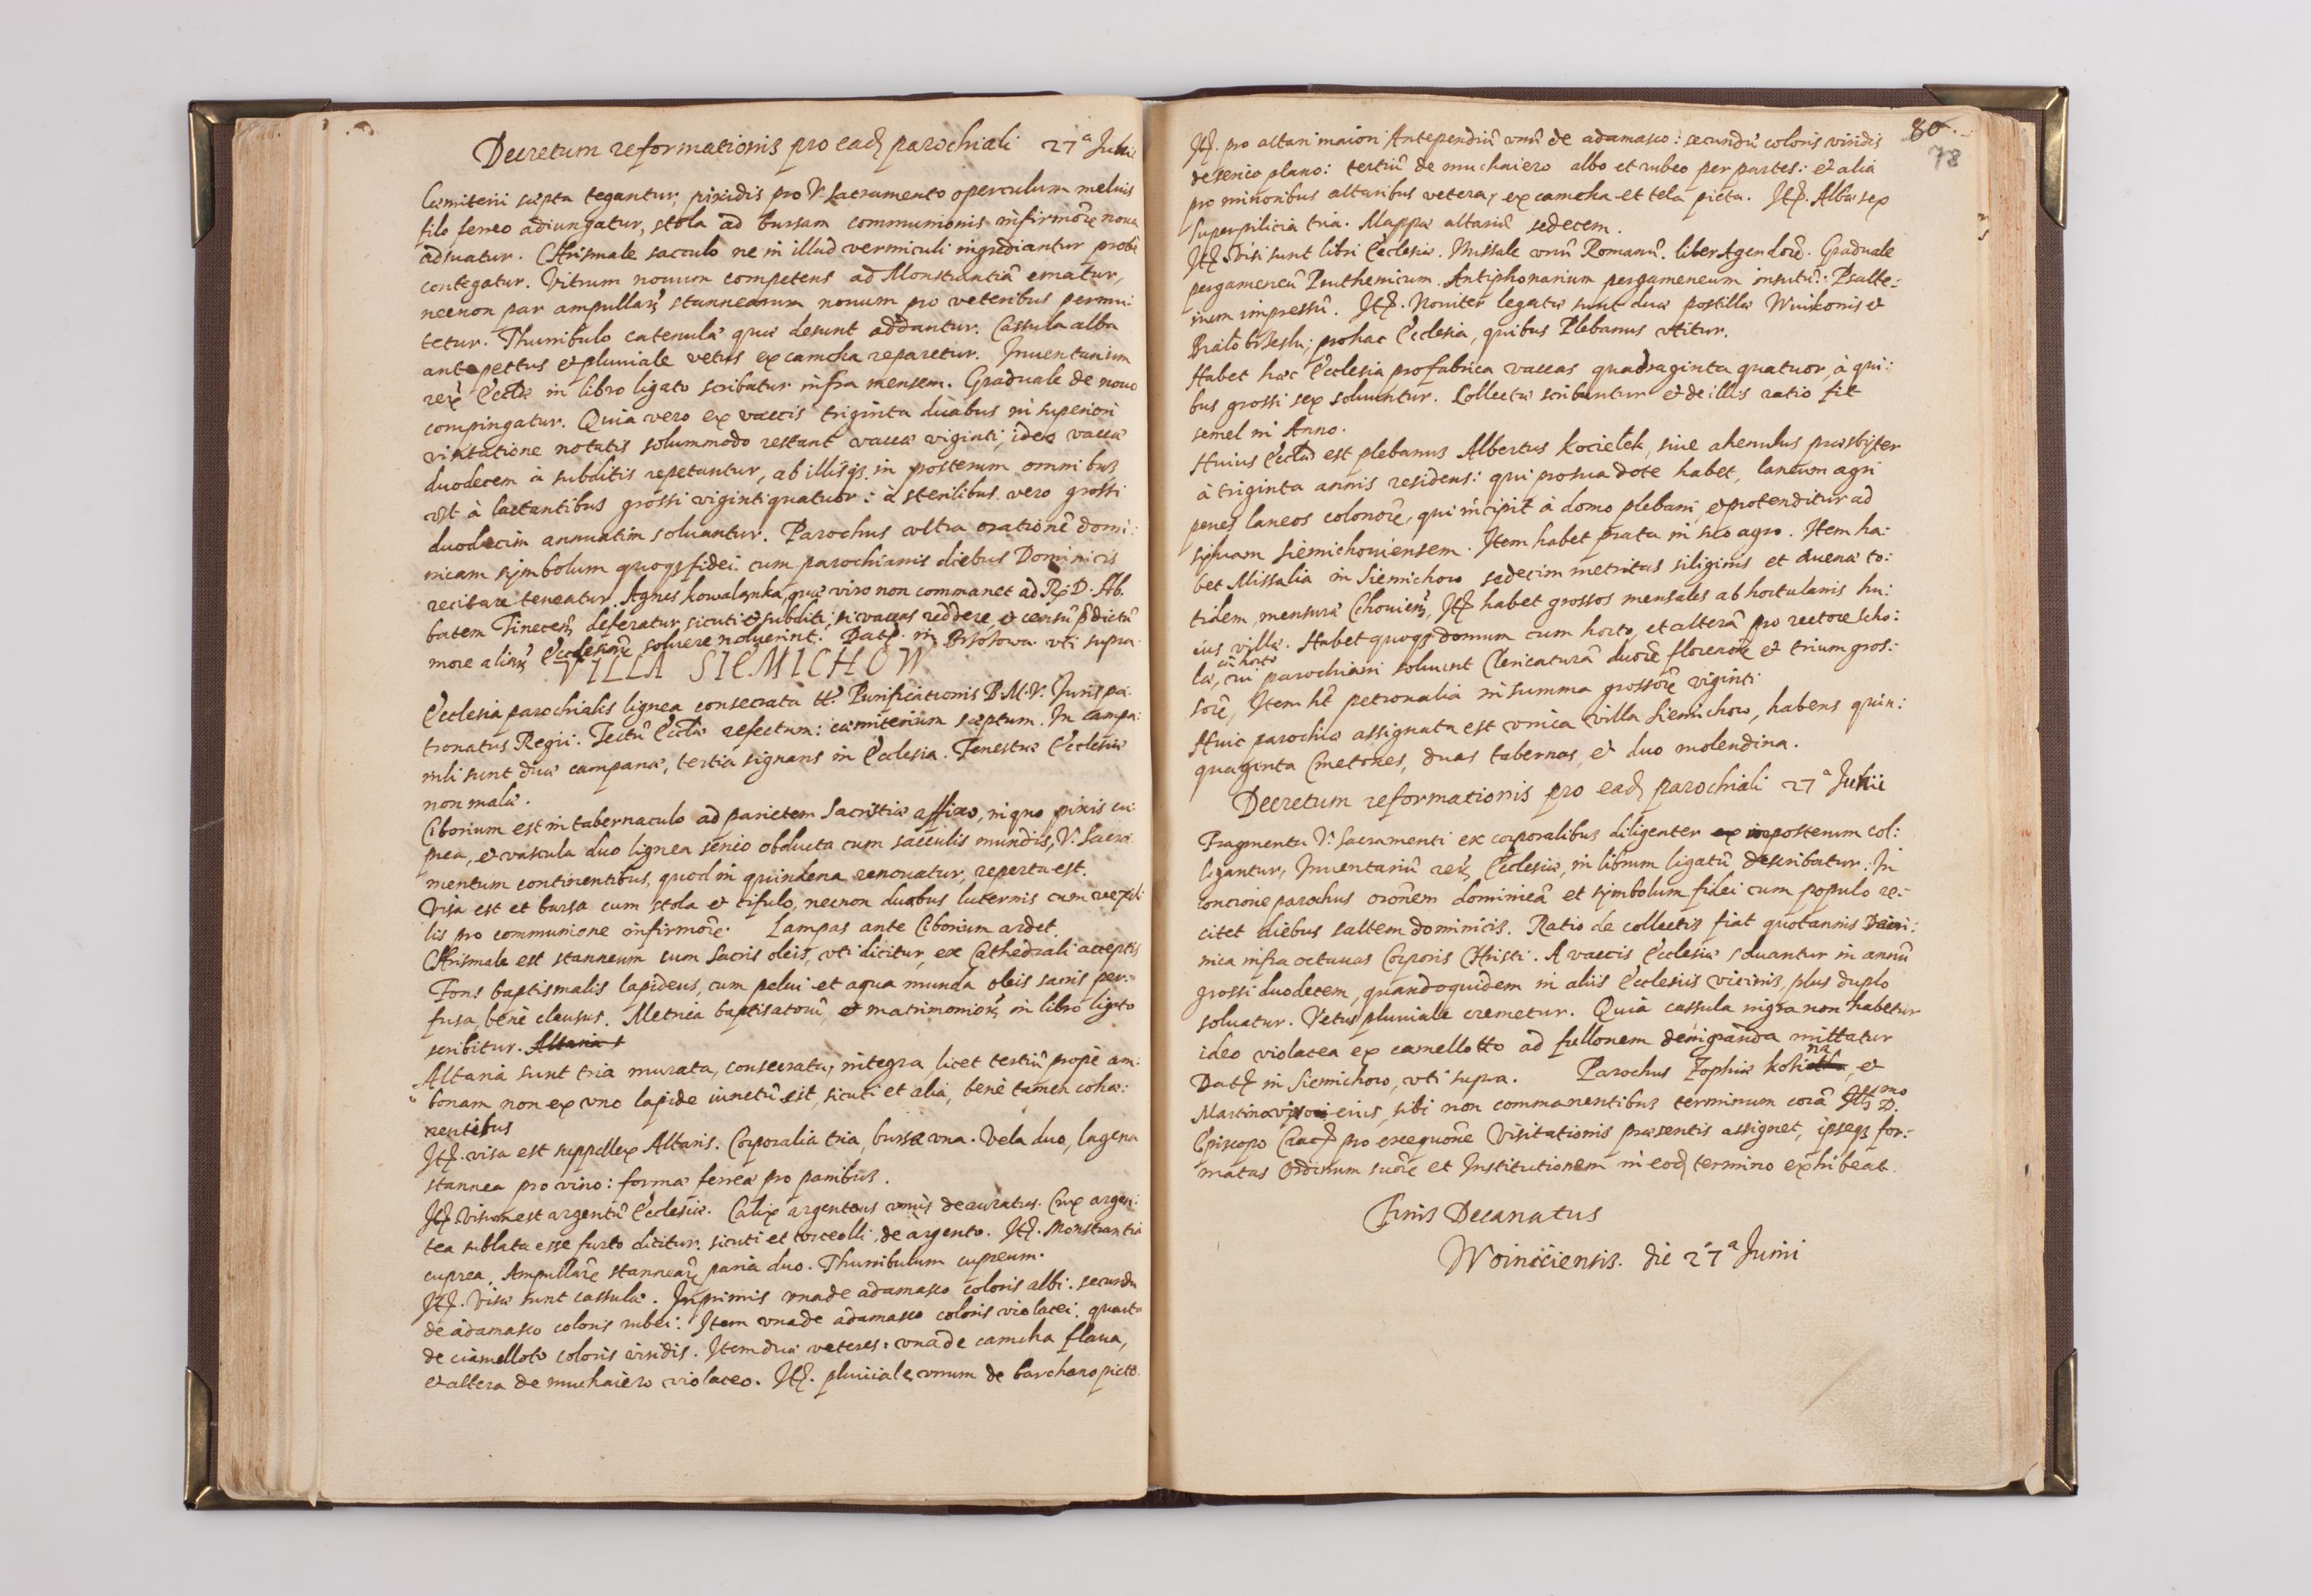 Decretum reformationis pro ead parochiali 27ª Junii
Cœmiterii sæpta tegantur; pixidis pro V. Sacramento operculum melius
filo ferreo adiungatur, stola ad bursam communionis infirmorũ noua
adsuatur. Chrismale sacculo ne in illud vermiculi ingrediantur probè
contegatur. Vitrum nouum competens ad Monstrantiã ematur,
necnon par ampullarũ stannearum nouum pro veteribus permu:
tetur. Thuribulo catenulæ quæ desunt addantur. Cassula alba
ante pettus et pluuiale vetus ex camcha reparetur. Inuentarium
rerũ Eccliæ in libro ligato scribatur infra mensem. Graduale de nouo
compingatur. Quia vero ex vaccis triginta duabus in superiori
visitatione notatis solummodo restant vaccæ viginti, ideo vaccæ
duodecem à subditis repetantur, ab illisq; in posterum omnibus
vst à lactantibus grossi vigintiquatuor: à sterilibus vero grossi
duodecim annuatim soluantur. Parochus vltra orationẽ domi:
nicam symbolum quoq; fidei cum parochianis diebus Dominicis
recitare teneatur. Agnes Kowalanka, quæ viro non commanet ad R. D. Ab.
batem Tinecen̄ deferatur, sicuti et subditi, si vaccas reddere, et censũ p̃dictũ
more aliarũ Ecclesiarũ soluere noluerint. Dat. in vti supra
VILLA SIEMICHOW
Ecclesia parochialis lignea consecrata tt. Purificationis B.M.V. Juris pa:
tronatus Regii. Tectũ Eccliæ refectum: cœmiterium sæptum. In campa:
nili sunt duæ campanæ, tertia signans in Ecclesia. Fenestræ Ecclesiæ
non malæ.
Ciborium est in tabernaculo ad parietem Sacristiæ affixo, in quo pixis cu:
prea, et vascula duo lignea serico obducta cum sacculis mundis, V. Sacra
mentum continentibus, quod in quindena renouatur, reperta est.
Visa est et bursa cum stola et cifulo, necnon duabus luternis cum vexil:
lis pro communione infirmorũ. Lampas ante Ciborium ardet.
Chrismale est stanneum cum Sacris oleis, vti dicitur, ex Cathedrali acceptis
Fons baptismalis lapideus, cum pelui et aqua munda oleis sacris per:
fusa, benè clausus. Metrica baptisatorũ, et matrimoniorũ in libro ligato
scribitur. Altaria s
Altaria sunt tria murata, consecrata, integra, licet tertiũ propè am:
bonam non ex vno lapide iunctũ sit, sicuti et alia, benè tamen cohæ:
rentibus
It. visa est suppellex Altaris. Corporalia tria, bursa vna. Vela duo, lagena
stannea pro vino: forma ferrea pro panibus.
It. Visum est argentũ Ecclesiæ. Calix argenteus vnus deauratus. Crux argen:
tea sublata esse furto dicitur. sicuti et vrceolli, de argento. It. Monstrantia
cuprea. Ampullarũ stannearũ paria duo. Thuribulum cupreum.
It. Visæ sunt cassulæ. Inprimis vna de adamasco coloris albi: secunda
de adamasco coloris rubei: Item vna de adamasco coloris violacei: quarta
de ciamelloto coloris viridis. Item duæ veteres: vna de camcha flaua,
et altera de muchaiero violaceo. It. pluuiale vnum de barchano picto.
80.
78
It. pro altari maiori Antependiũ vnũ de adamasco: secundũ coloris viridis
de serico plano: tertiũ de muchaiero albo et rubeo per partes: et alia
pro minoribus altaribus vetera, ex camcha et tela picta. It. Albæ sex
Superpilicia tria. Mappæ altariũ sedecem.
It. Visi sunt libri Ecclesiæ. Missale vnũ Romanũ. liber Agendorũ. Graduale
pergameneũ Ruthenicum. Antiphonarium pergameneum insutũ: Psalte:
rium impressũ. It. Nouiter legatæ sunt duæ postillæ Wuiekonis et
pro hac Ecclesia, quibus Plebanus vtitur.
Habet hæc Ecclesia pro fabrica vaccas quadraginta quatuor, à qui:
bus grossi sex soluuntur. Collectæ scribuntur et de illis ratio fit
semel in Anno.
Huius Eccliæ est plebanus Albertus Kociełek, siue ahenulus præsbyter
à triginta annis residens: qui pro sua dote habet, laneum agri
penes laneos colonorũ, qui incipit à domo plebani, et protenditur ad
syluam Siemichouiensem. Item habet prata in suo agro. Item ha:
bet Missalia in Siemichow sedecim metretas siliginis et auenæ to:
tidem, mensuræ Cchouien̄, It habet grossos mensales ab hortulanis hu:
ius villæ. Habet quoq; domum cum horto, et alterã pro rectore scho:
cũ horto
læ, cui parochiani soluunt Clericaturã duorũ florenorũ et trium gros:
sorũ, Item ht petronalia in summa grossorũ viginti
Huic parochiæ assignata est vnica villa Siemichow, habens quin:
quaginta Cmetones, duas tabernas, et duo molendina.
Decretum reformationis pro ead parochiali 27ª Junii
Fragmenta V. Sacramenti ex corporalibus diligenter ex in posterum col:
ligantur, Inuentariũ rerũ Ecclesiæ, in librum ligatũ describatur. In
concione parochus orõnem dominicã et symbolum fidei cum populo re:
citet diebus saltem dominicis. Ratio de collectis fiat quotannis Domi:
nica infra octauas Corporis Christi. A vaccis Ecclesiæ soluantur in annũ
grossi duodecem, quandoquidem in aliis Ecclesiis vicinis, plus duplo
soluatur. Vetus pluuiale cremetur. Quia cassula nigra non habetur
ideo violacea ex camellotto ad fullonem denigranda mittatur
Dat in Siemichow, vti supra. Parochus Zophiæ et
Martino viro eius, sibi non commanentibus terminum corã Illmo D.
Episcopo Crac pro exequõne Visitationis præsentis assignet, ipseq; for:
matas Ordinum suorũ et Institutionem in eod termino exhibeat.
Finis Decanatus
Woiniciensis. die 27ª Junii